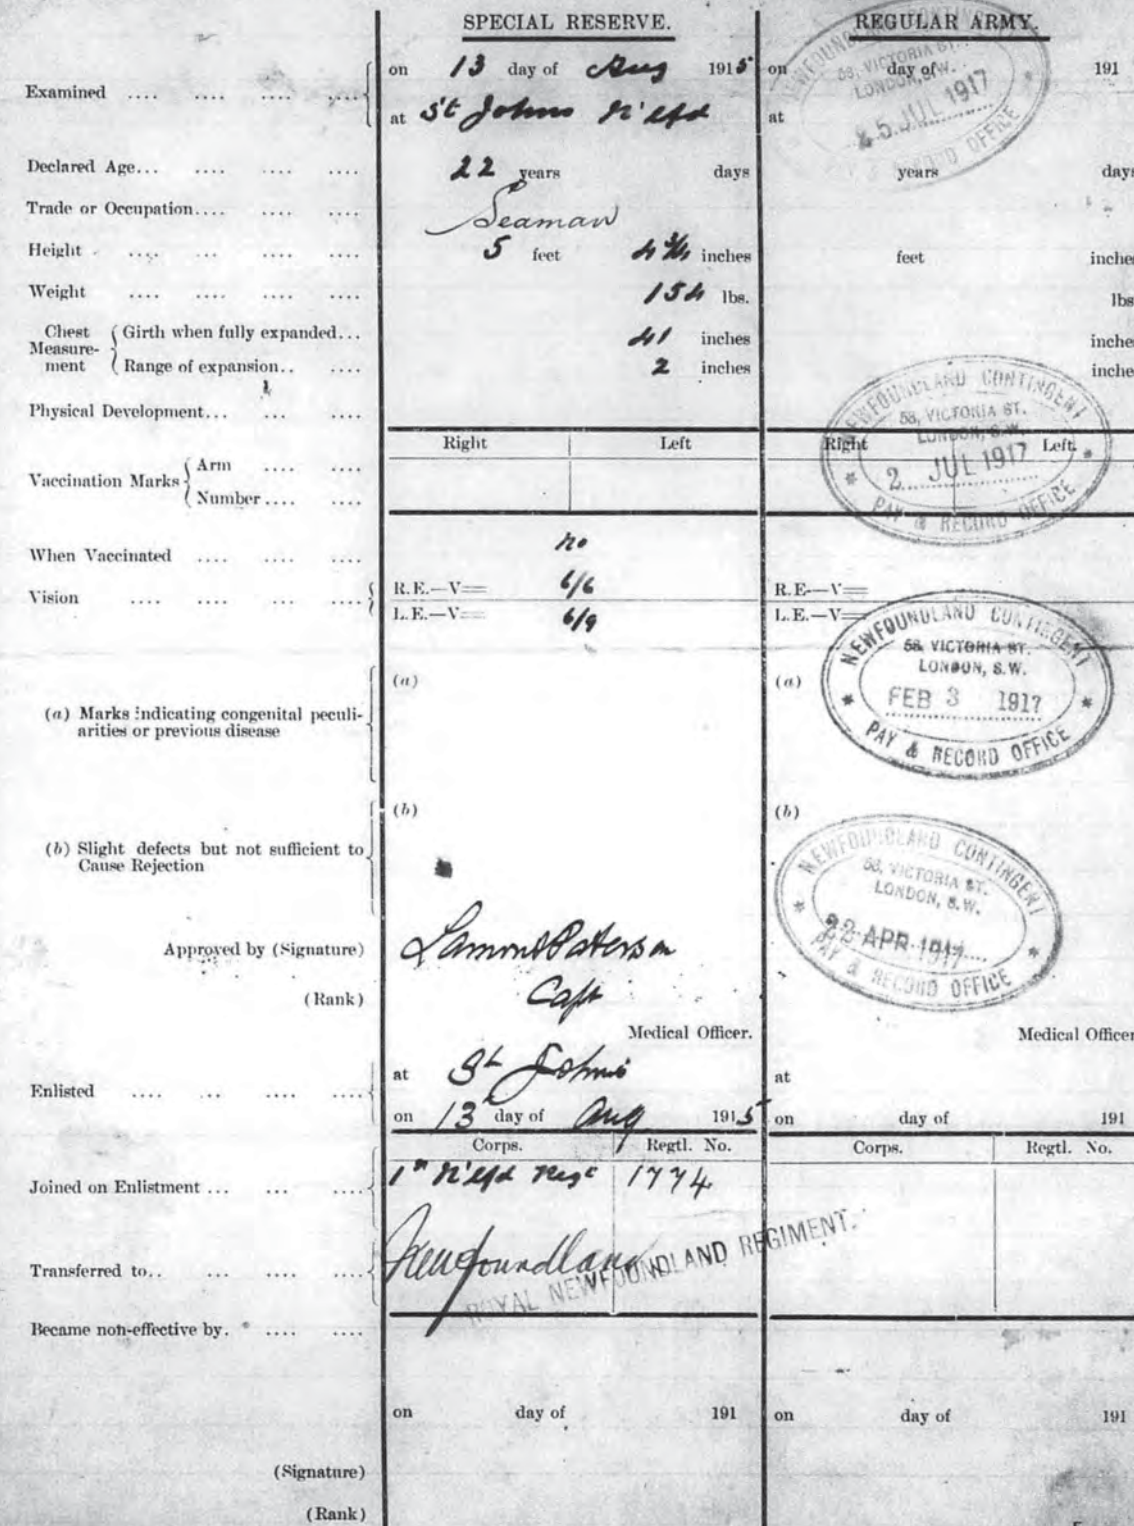 SPECIAL RESERVE. REGULAR ARMY.
NEWFOUNDLAND CONTINGENT
58, VICTORIA ST.
LONDON, S.W.
25 JUL 1917
RECORD OFFICE
Examined .... .... .... .... on 13 day of Aug 1915 on day of 191
at St Johns N'fld at
Declared Age... .... .... .... 22 years days years days
Trade or Occupation.... .... .... Seaman
Height .... .... .... .... 5 feet 4 3/4 inches feet inches
Weight .... .... .... .... 154 lbs. lbs
Chest Measure-ment { Girth when fully expanded... 41 inches inches
Range of expansion.. .... 2 inches inches
Physical Development... ... ....
NEWFOUNDLAND CONTINGENT
58, VICTORIA ST.
LONDON, S.W.
2 JUL 1917
PAY & RECORD OFFICE
Right Left Right Left
Vaccination Marks { Arm .... ....
Number .... ....
When Vaccinated .... .... .... no
Vision .... .... ... .... R.E.—V= 6/6 R.E—V=
L.E.—V= 6/9 L.E.—V=
NEWFOUNDLAND CONTINGENT
58, VICTORIA ST.
LONDON, S.W.
FEB 3 1917
PAY & RECORD OFFICE
(a) Marks indicating congenital peculi-
arities or previous disease
(a) (a)
(b) Slight defects but not sufficient to
Cause Rejection
(b) (b)
NEWFOUNDLAND CONTINGENT
58, VICTORIA ST.
LONDON, S.W.
22 APR 1917
PAY & RECORD OFFICE
Approved by (Signature) Lamont Paterson
(Rank) Capt
Medical Officer. Medical Officer
Enlisted .... ... .... .... at St Johns at
on 13 day of Aug 1915 on day of 191
Corps. Regtl. No. Corps. Regtl. No.
Joined on Enlistment ... ... .... 1st N'fld Regt 1774
Transferred to.. ... .... .... Newfoundland
ROYAL NEWFOUNDLAND REGIMENT.
Became non-effective by. .... ....
on day of 191 on day of 191
(Signature)
(Rank)